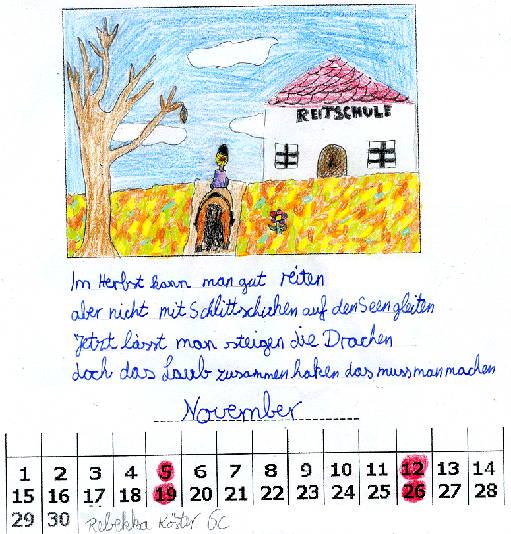 REITSCHULE
Im Herbst kann man gut reiten
aber nicht mit Schlittschuhen auf den Seen gleiten
Jetzt lässt man steigen die Drachen
doch das Laub zusammen haken das muss man machen
November
1 2 3 4 5 6 7 8 9 10 11 12 13 14
15 16 17 18 19 20 21 22 23 24 25 26 27 28
29 30 Rebekka Köster 6c